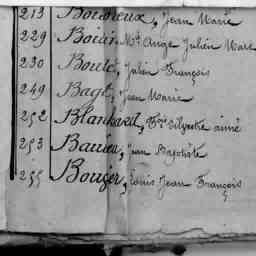 213 Boisreux, Jean Marie
229 Boiari, Mie Ange Julien Marc
230 Boulé, Julien François
249 Bagt, Jean Marie
252 Blanchard, Silvestre aimé
253 Baucer, Jean Baptiste
255 Bouger, Louis Jean François